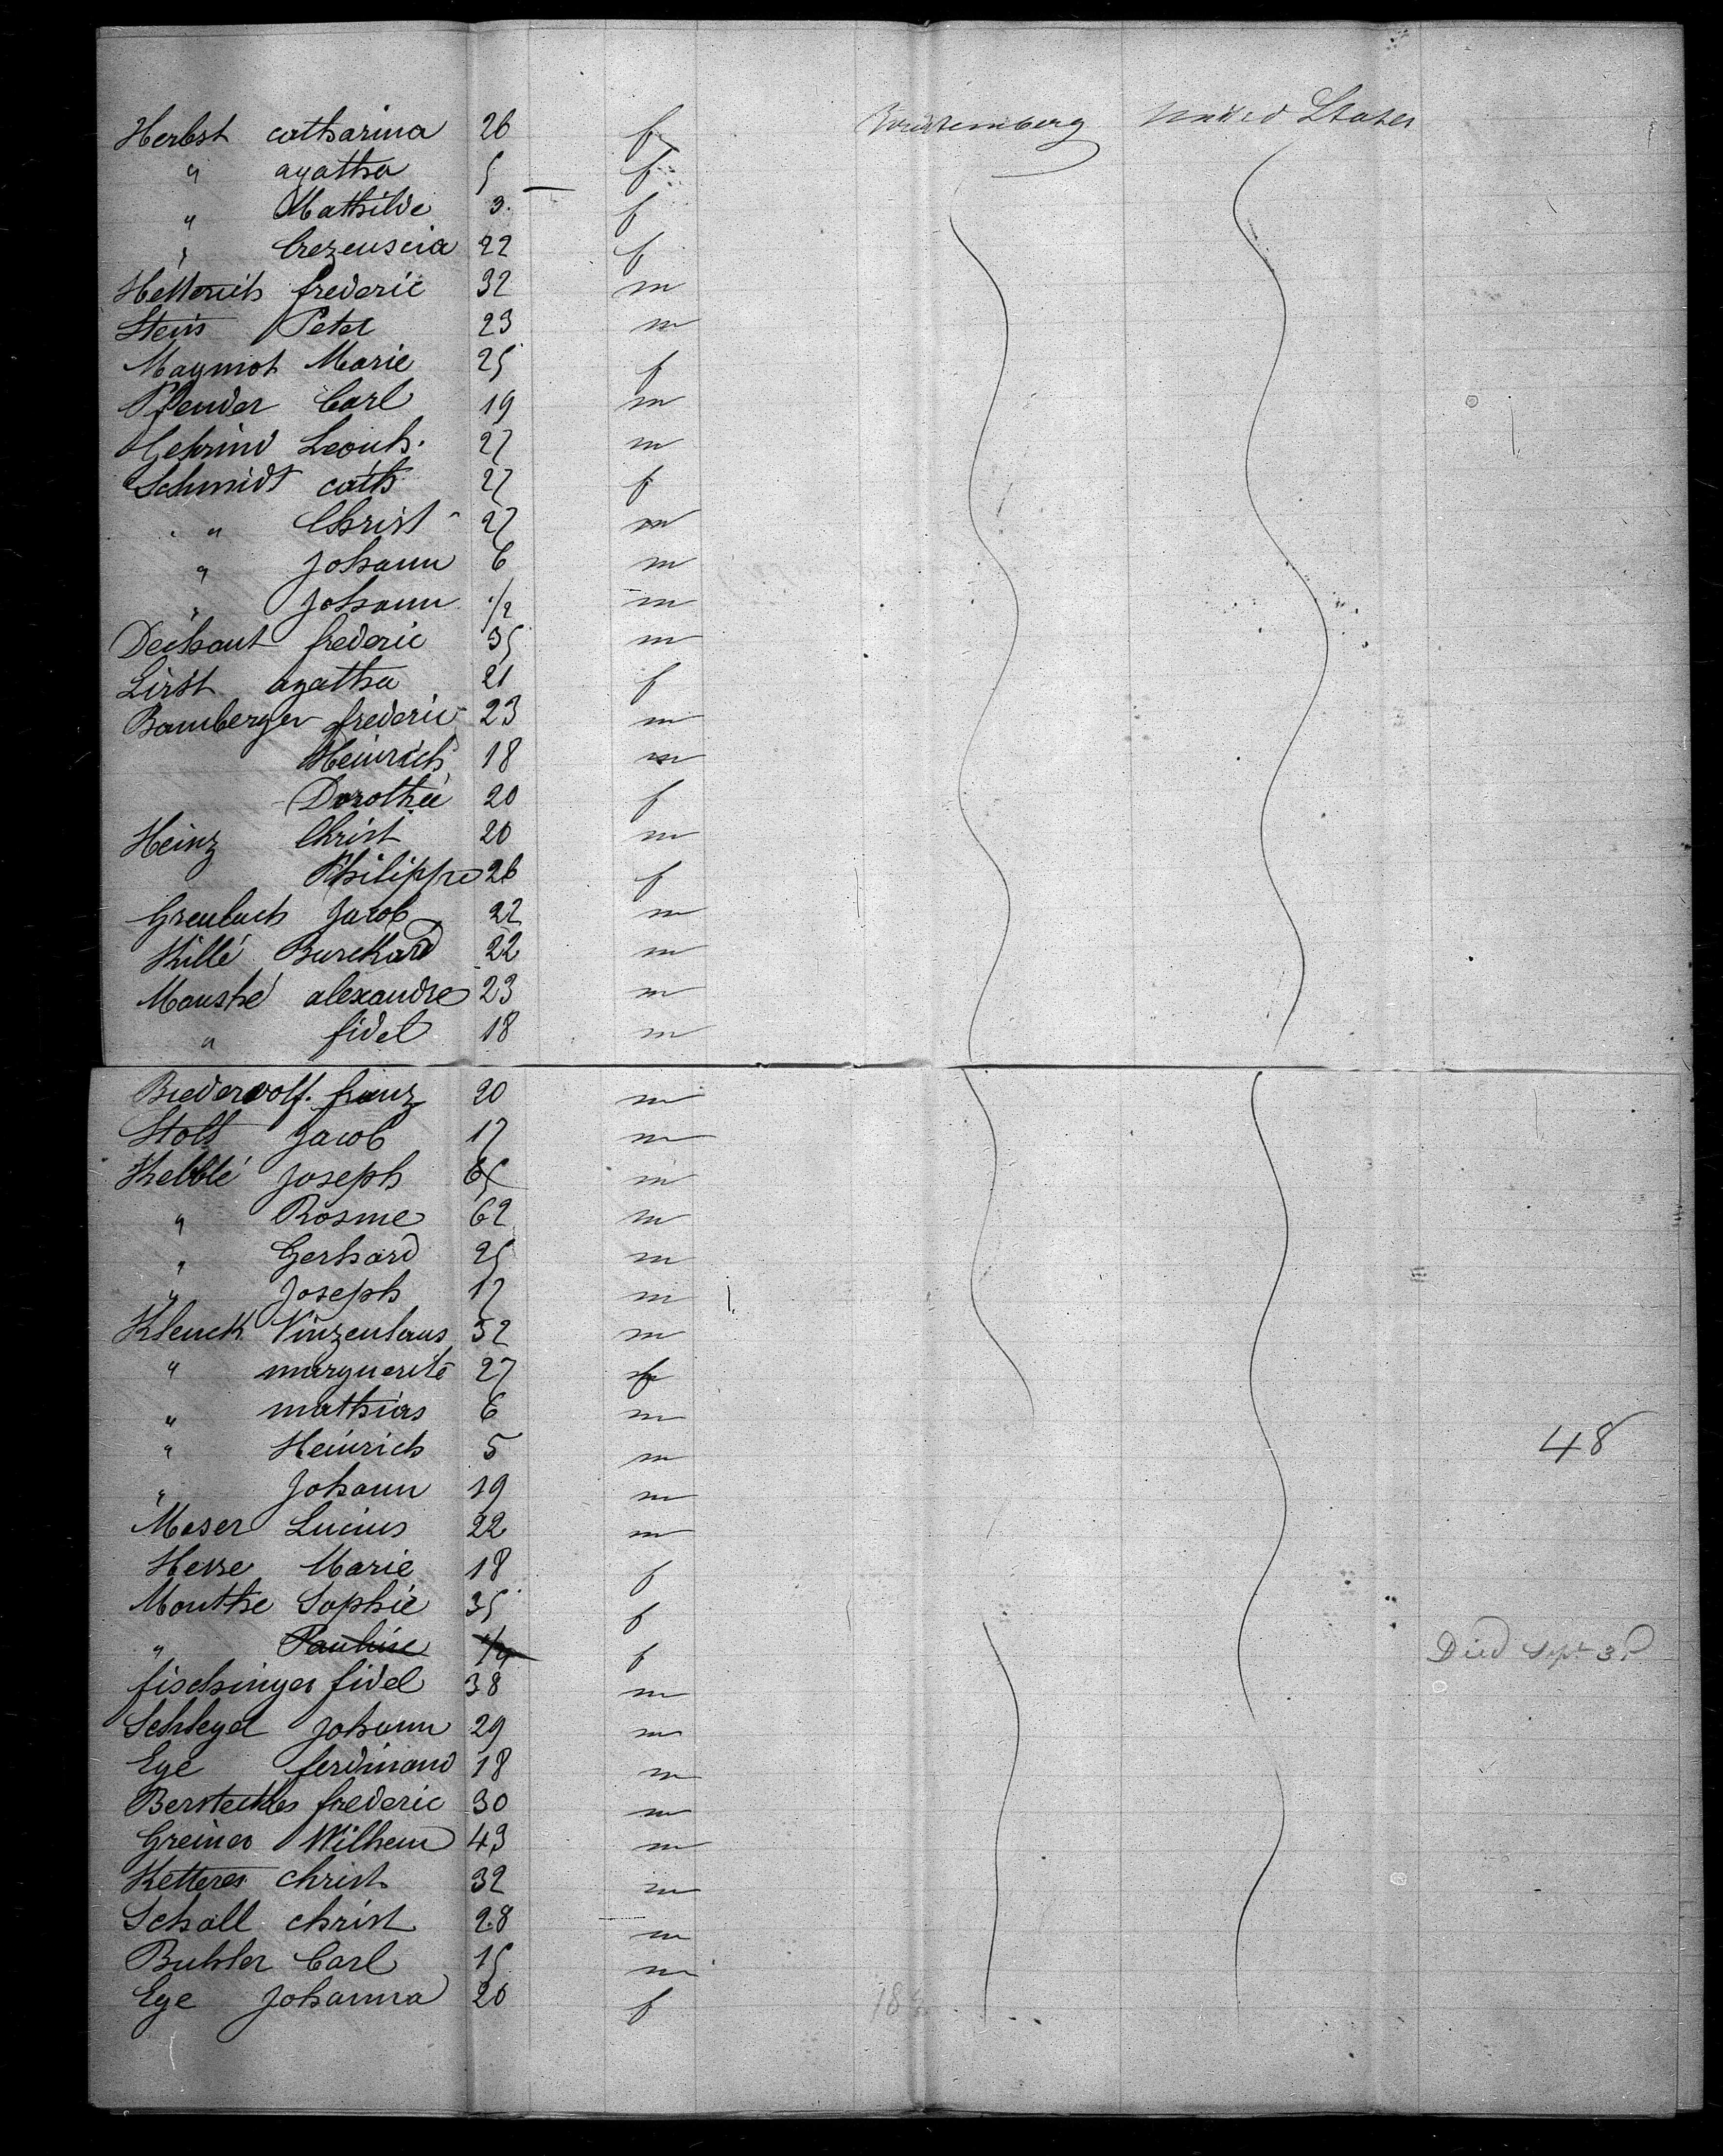 Herbst catharina 26 f Wurtemberg United States
" agatha 5 f
" Mathilde 3. f
" Crezenscia 22 f
Hetterich frederic 32 m
Stein Peter 23 m
Maymot Marie 25 f
Pfender Carl 19 m
Gehrind Leonh. 27 m
Schmidt cath 27 f
" Christ 27 m
" Johann 6 m
" Johann 1/2 m
Dechant frederic 35 m
Lirst agatha 21 f
Bamberger frederic 23 m
Heinrich 18 m
Dorothée 20 f
Heinz Christ 20 m
Philippe 26 f
Greulach Jacob 22 m
Hillé Burckard 22 m
Moushé alexandre 23 m
" fidel 18 m
Biederwolf. franz 20 m
Stolt Jacob 17 m
Helblé Joseph 65 m
" Rosine 62 m
" Gerhard 25 m
" Joseph 17 m
Klenck Vinzenlaus 52 m
" marguerite 27 f
" mathias 6 m
" Heinrich 5 m 48
" Johann 19 m
Moser Lucius 22 m
Hesse Marie 18 f
Mouthe Sophie 35 f
" Pauline 1/4 f Died Sept 3
fischinger fidel 38 m
Schlegel Johann 29 m
Ege ferdinand 18 m
frederic 30 m
Greiner Wilhem 43 m
Ketterer christ 32 m
Schall christ 28 m
Buhler Carl 15 m
Ege Johanna 20 f